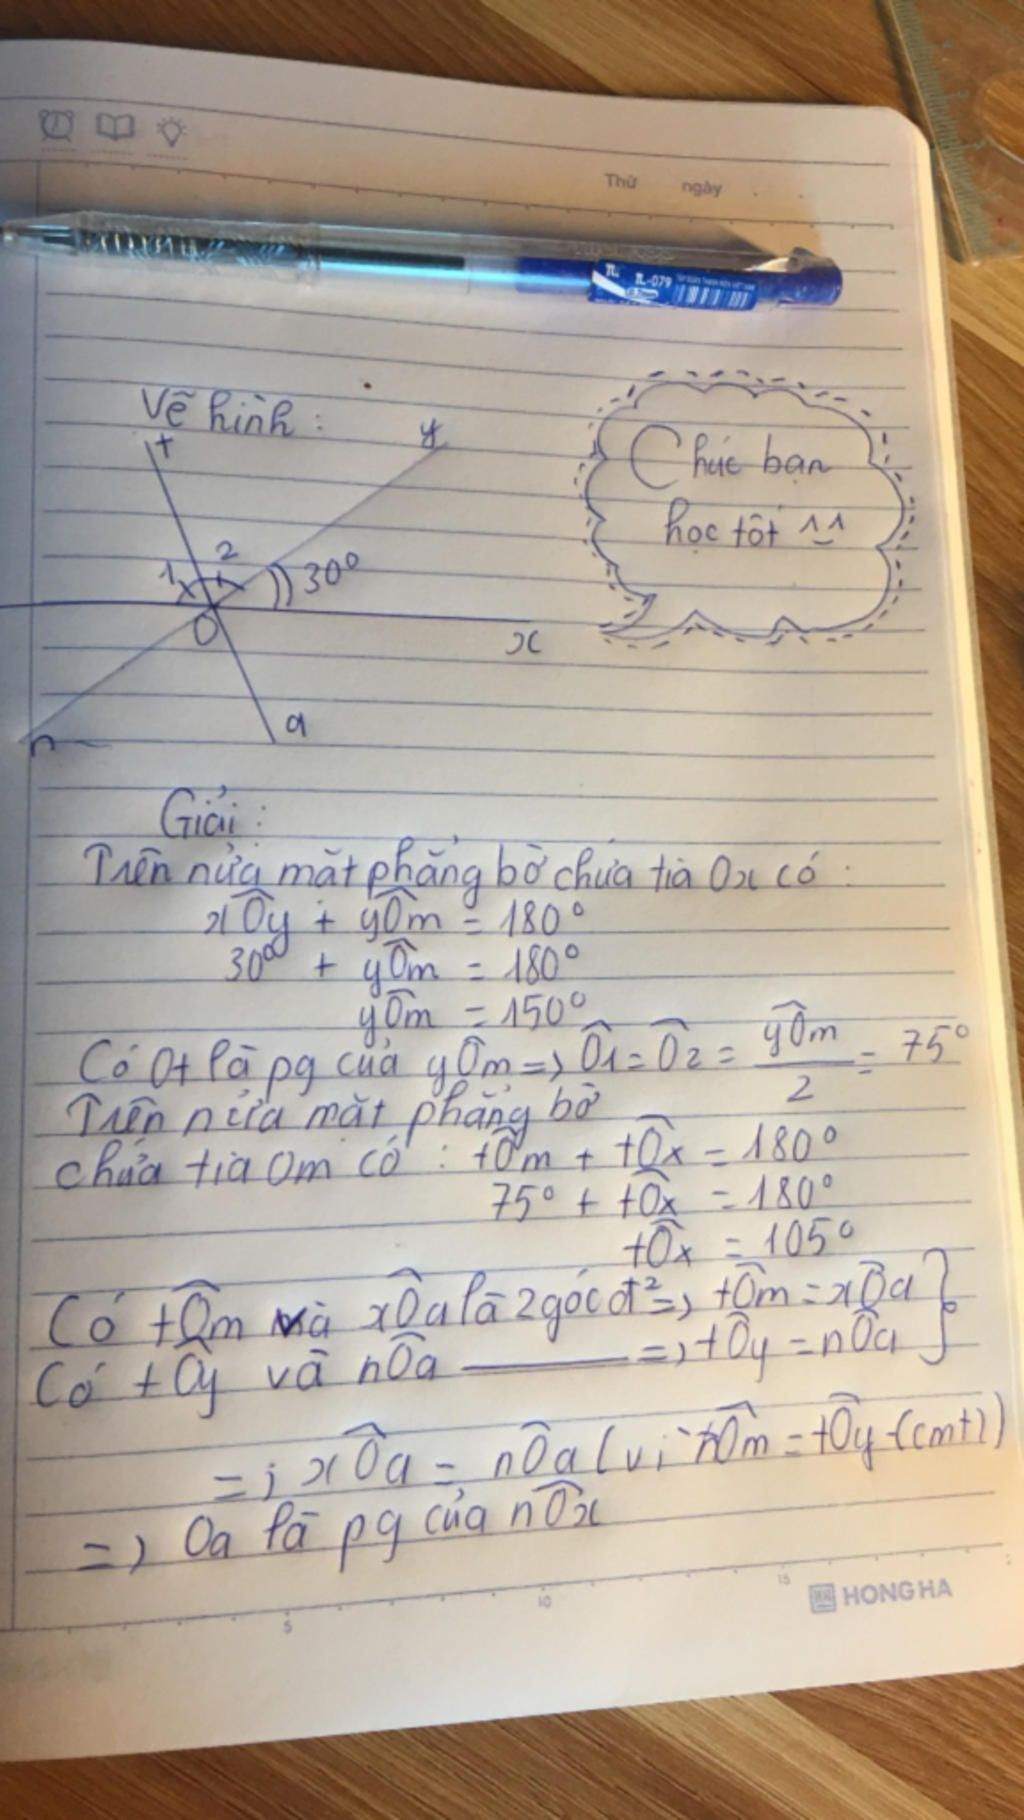 Thứ ngày
TL-079
Vẽ hình:
t
y
1 2
30°
O
x
n
a
Chúc bạn
học tốt ^^
Giải:
Trên nửa mặt phẳng bờ chứa tia Ox có:
xÔy + yÔm = 180°
30° + yÔm = 180°
yÔm = 150°
Có Ot là pg của yÔm => Ô1 = Ô2 = yÔm/2 = 75°
Trên nửa mặt phẳng bờ
chứa tia Om có: tÔm + tÔx = 180°
75° + tÔx = 180°
tÔx = 105°
Có tÔm và xÔa là 2 góc đ² => tÔm = xÔa }
Có tÔy và nÔa ——— => tÔy = nÔa
=> xÔa = nÔa (vì tÔm = tÔy (cmt))
=> Oa là pg của nÔx
5 10 15
HONG HA